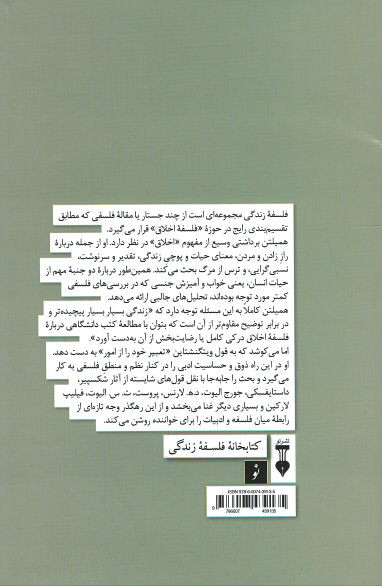 فلسفهٔ زندگی مجموعه‌ای است از چند جستار یا مقالهٔ فلسفی که مطابق
تقسیم‌بندی رایج در حوزهٔ «فلسفهٔ اخلاق» قرار می‌گیرد.
همیلتن برداشتی وسیع از مفهوم «اخلاق» در نظر دارد. او از جمله دربارهٔ
راز زادن و مردن، معنای حیات و پوچی زندگی، تقدیر و سرنوشت،
نسبی‌گرایی، و ترس از مرگ بحث می‌کند. همین‌طور دربارهٔ دو جنبهٔ مهم از
حیات انسان، یعنی خواب و آمیزش جنسی که در بررسی‌های فلسفی
کمتر مورد توجه بوده‌اند، تحلیل‌های جالبی ارائه می‌دهد.
همیلتن کاملاً به این مسئله توجه دارد که «زندگی بسیار بسیار پیچیده‌تر و
در برابر توضیح مقاوم‌تر از آن است که بتوان با مطالعهٔ کتب دانشگاهی دربارهٔ
فلسفهٔ اخلاق درکی کامل یا رضایت‌بخش از آن به‌دست آورد».
اما می‌کوشد که به قول ویتگنشتاین «تعبیر خود را از امور» به دست دهد.
او در این راه ذوق و حساسیت ادبی را در کنار نظم و منطق فلسفی به کار
می‌گیرد و بحث را جابه‌جا با نقل قول‌های شایسته از آثار شکسپیر،
داستایفسکی، جورج الیوت، د.ه‍. لارنس، پروست، ت. س. الیوت، فیلیپ
لارکین و بسیاری دیگر غنا می‌بخشد و از این رهگذر وجه تازه‌ای از
رابطهٔ میان فلسفه و ادبیات را برای خواننده روشن می‌کند.
کتابخانهٔ فلسفهٔ زندگی
نشر نو
نو